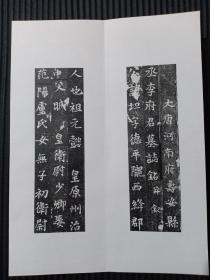 大唐河南府壽安縣
丞李府君墓誌銘并叙
公諱坦字德平隴西絳郡
人也祖元懿皇原州治
中父昕皇衛尉少卿娶
范陽盧氏女無子初衛尉